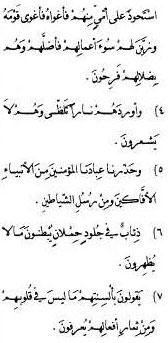 استحوذ على أممٍ منهم فأغواه فأغوى قومه
وزين لهم سوء أعمالهم فأضلهم وهم
بضلالهم فرحون .
٤) وأوردهم نارا تلظى وهم لا
يشعرون .
٥) وحذرنا عبادنا المؤمنين من الأنبياء
الأفاكين ومن رسل الشياطين .
٦) ذئاب في جلود حملان يبطنون ما لا
يظهرون .
٧) يقولون بألسنتهم ما ليس في قلوبهم
ومن ثمار أفعالهم يعرفون .